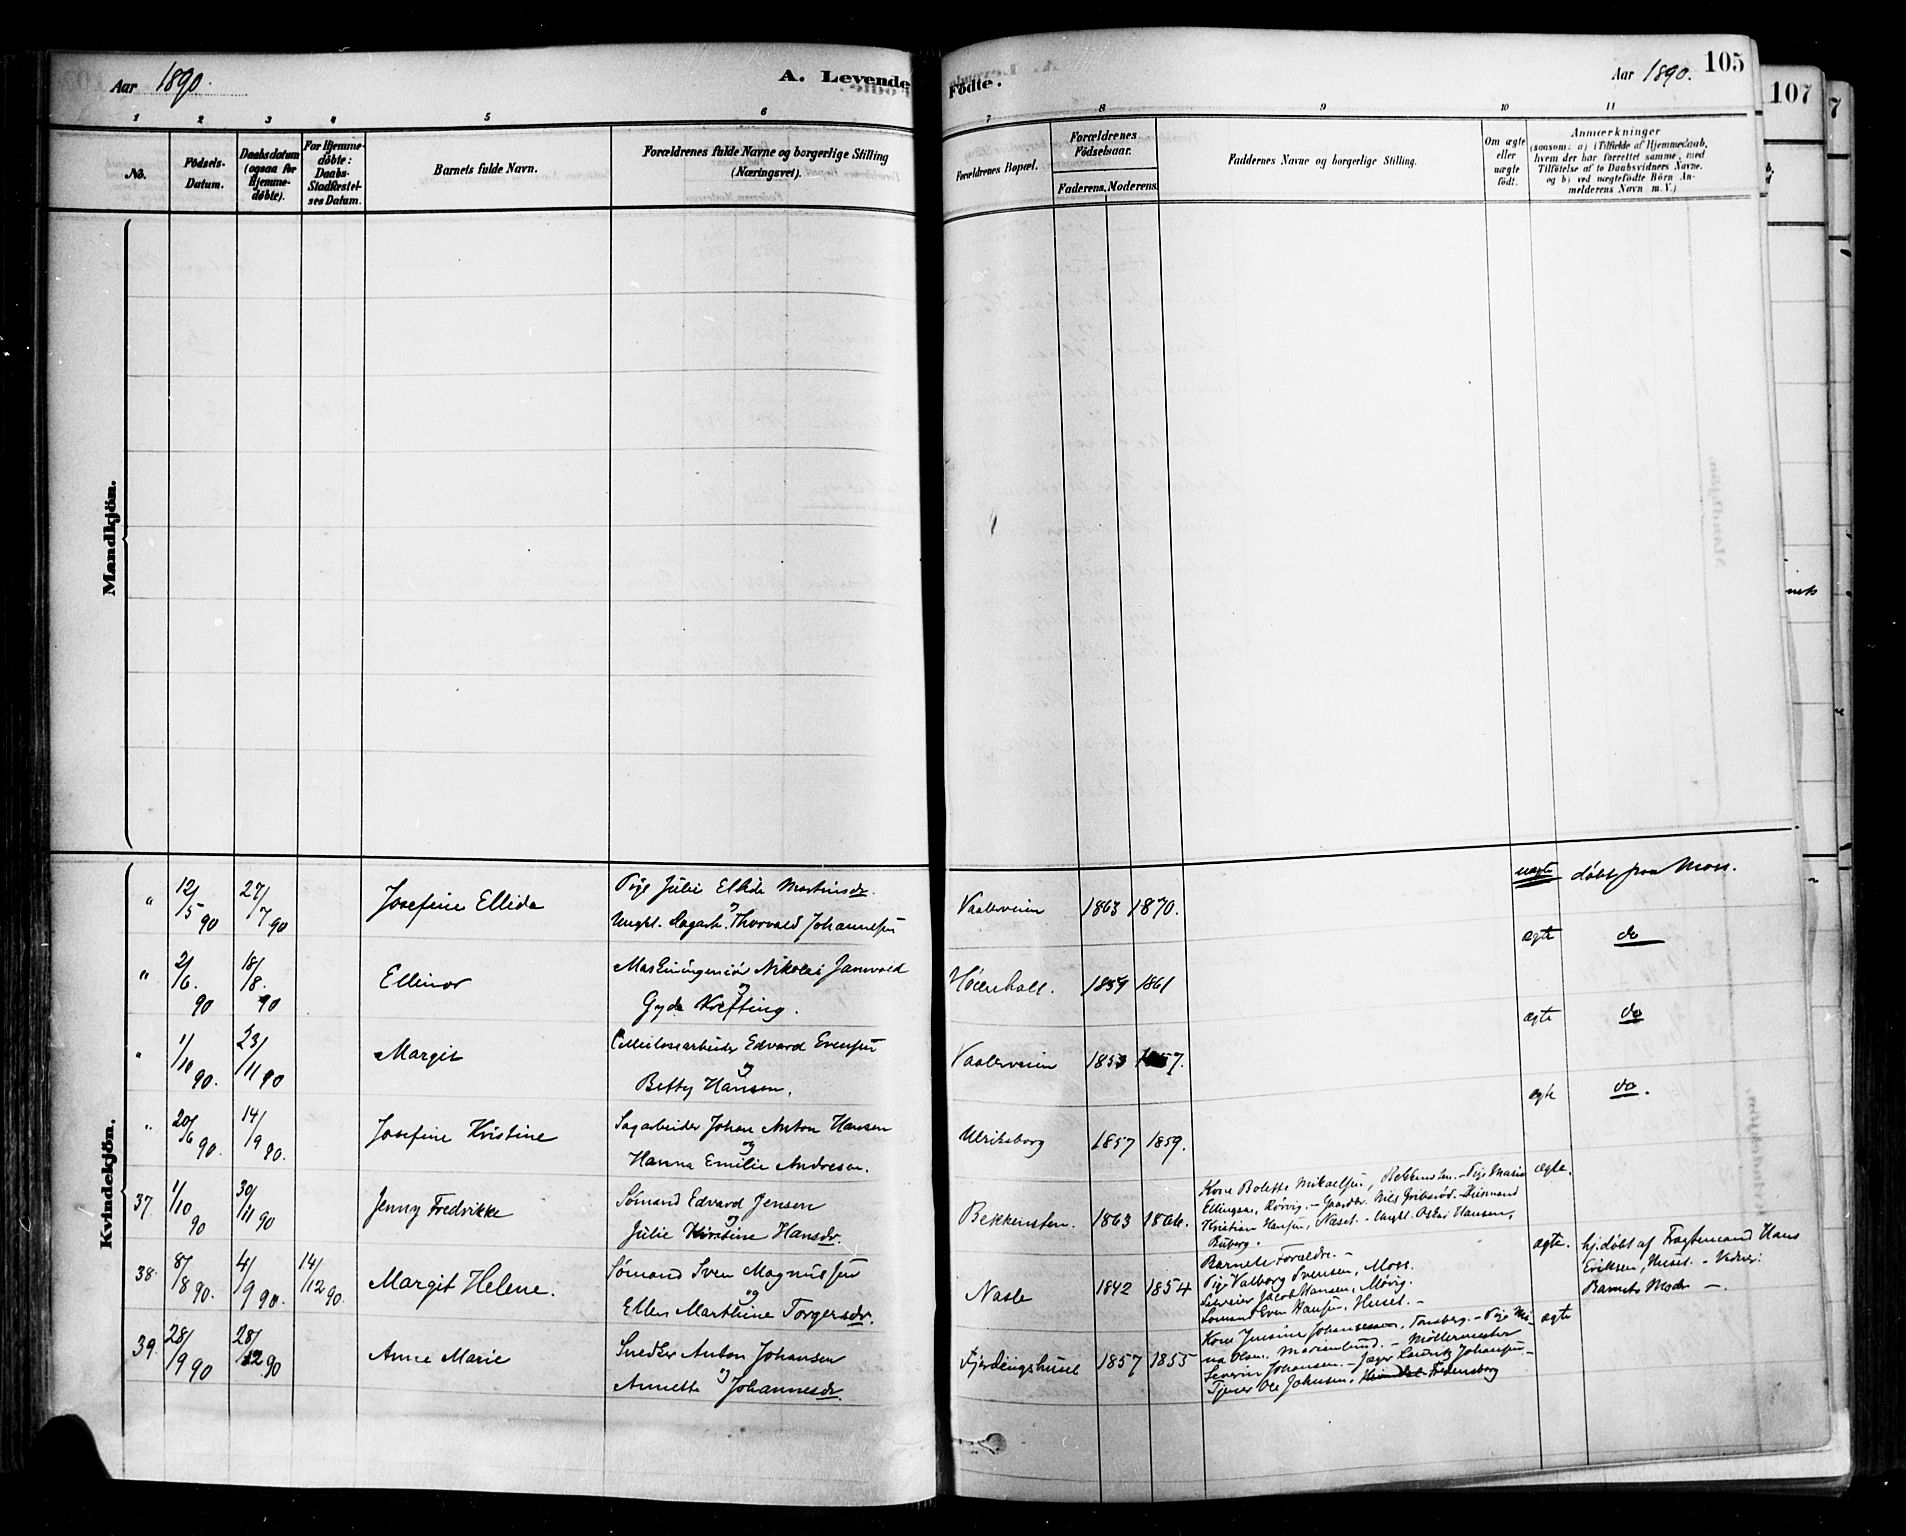 Aar 1890.
A. Levende
Födte.
Aar 1890.
105
107
7
1 2 3 4 5 6 7 8 9 10 11
No.
Födsels-
Datum.
Daabsdatum
(ogsaa for
Hjemme-
döbte).
For Hjemme-
döbte:
Daabs-
Stadfæstel-
ses Datum.
Barnets fulde Navn.
Forældrenes fulde Navne og borgerlige Stilling
(Næringsvei).
Forældrenes Bopæl.
Forældrenes
Födselsaar.
Faderens. Moderens.
Faddernes Navne og borgerlige Stilling.
Om ægte
eller
uægte
födt.
Anmærkninger
(saasom: a) i Tilfælde af Hjemmedaab,
hvem der har forrettet samme, med
Tilföielse af to Daabsvidners Navne.
og b) ved uægtefödte Börn An-
melderens Navn m. V.)
Mandkjön.
Kvindekjön.
" 12/5 90 27/7 90 Josefine Ellida
Pige Julie Ellida Martinsdr.
og
Ungk. Dagarb. Thorvald Johannesen
Vaalerveien 1863 1870. uægte døbt fra Moss.
" 2/6. 90 18/8. 90 Ellinor
Maskiningeniør Nikolai Janvold
og
Gyda Krefting.
Høienhald. 1859 1861 ægte do
" 1/10 90. 23/11 90 Margit
Cellulosearbeider Edvard Evensen
og
Betty Hansen.
Vaalerveien 1853 1857. ægte do
" 20/6 90. 14/9 90. Josefine Kristine
Sagarbeider Johan Anton Hansen
og
Hanna Emilie Andresen.
Ulriksborg 1857 1859. ægte do.
37. 1/10 90 30/11 90 Jenny Fredrikke
Sømand Edvard Jensen
og
Julie Kirstine Hansdr.
Bekkensten. 1863 1866.
Kone Bolette Mikaelsen, Bekkensten. - Pige Marie
Ellingsen, Rørvig. - Gaardbr. Nils Gribsrød. -
Kristian Hansen, Næset. - Ungk. Oskar Hansen,
Buberg.
ægte.
38. 8/8 90. 4/9 90. 14/12 90. Margit Helene.
Sømand Sven Magnussen
og
Ellen Marthine Torgersdr.
Nasle 1842 1854
Barnets Forældre. -
Pige Valborg Svensen, Moss.
Jacob Hansen, Møvig.
Sømand Even Hansen, Huset. -
ægte. hj.døbt af Fragtemand Hans
Eriksen, Huset. - Vidne:
Barnets Moder -
39. 28/9 90 28/12 90 Anne Marie
Snedker Anton Johansen
og
Annette Johannesdr.
Fjerdingshuset 1857 1855
Kone Jensine Johannessen, Tønsberg. - Pige Mi-
na Olsen, Marienlund. - Møllermester
Severin Johansen. - Johansen -
Tjener Ole Johnsen, Fredensborg
ægte